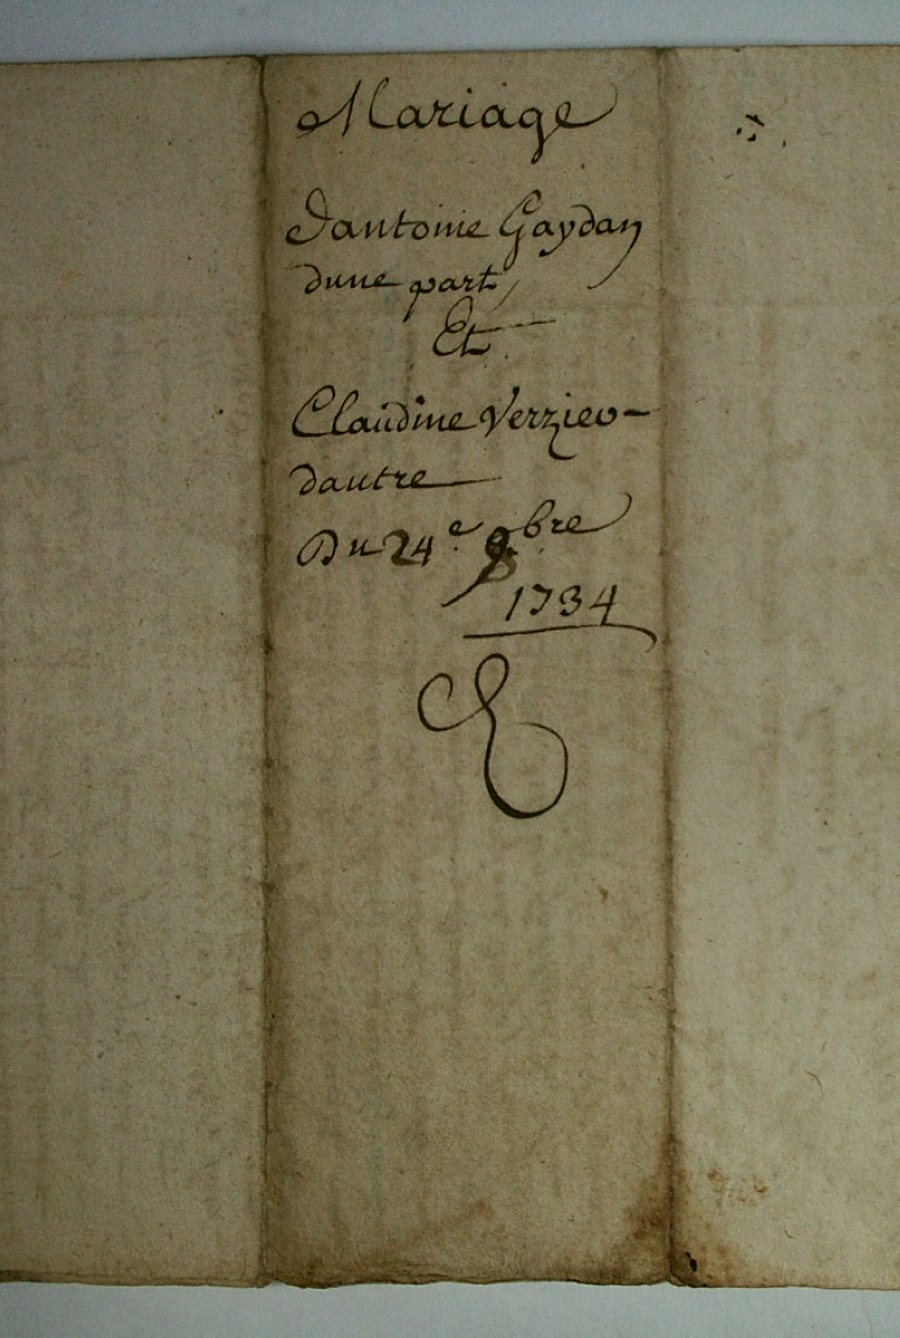 Mariage
Dantoine Gaydan
dune part,
Et
Claudine Verzieu
dautre
Du 24e 8bre
1734